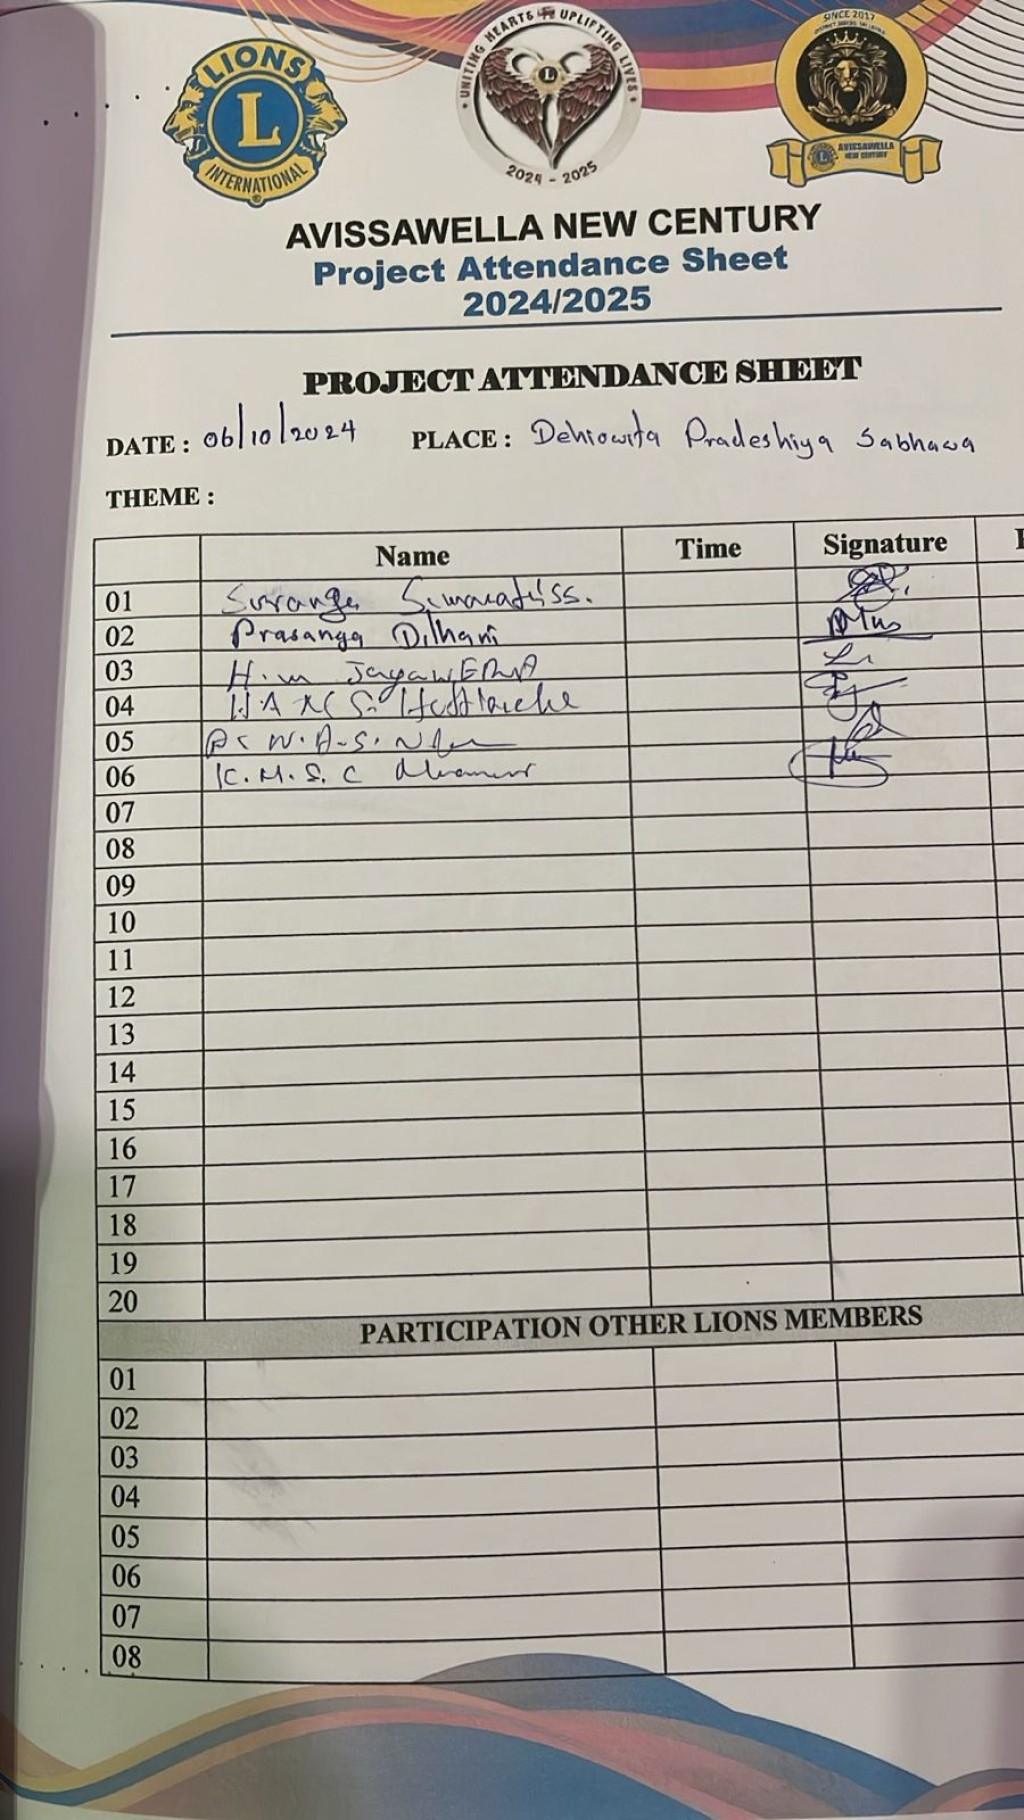 LIONS
L
INTERNATIONAL
UNITING HEARTS UPLIFTING LIVES
L
2024 - 2025
SINCE 2017
L
AVISSAWELLA
NEW CENTURY
AVISSAWELLA NEW CENTURY
Project Attendance Sheet
2024/2025
PROJECT ATTENDANCE SHEET
DATE : 06/10/2024 PLACE : Dehiowita Pradeshiya Sabhawa
THEME :
Name Time Signature
01 Suranga
02 Prasanga Dilhani
03 H.M JayawERA
04 H.A
05 W.A.S.
06 K.M.S.C
07
08
09
10
11
12
13
14
15
16
17
18
19
20
PARTICIPATION OTHER LIONS MEMBERS
01
02
03
04
05
06
07
08